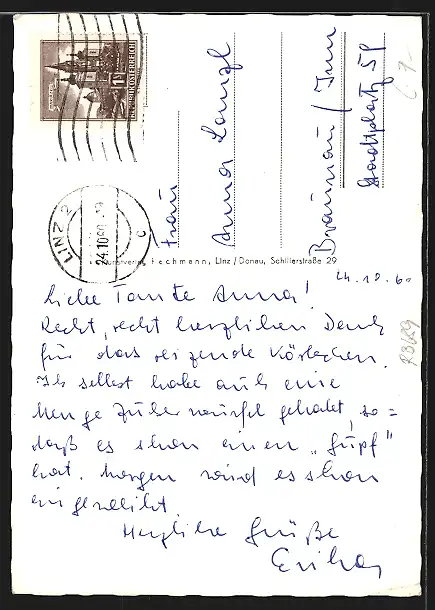 REPUBLIK ÖSTERREICH
LINZ 2
24.10.60 -19
c
Frau
Anna Lanzl
Braunau / Inn
Stadtplatz 59
Kunstverlag Hechmann, Linz / Donau, Schillerstraße 29
24.10.60
Liebe Tante Anna!
Recht, recht herzlichen Dank
für das reizende Körbchen.
Ich selbst habe auch eine
Menge Zuber gehabt, so=
daß es schon einen „Gupf"
hat. Morgen wird es schon
eingeweiht.
Herzliche Grüße
Erika